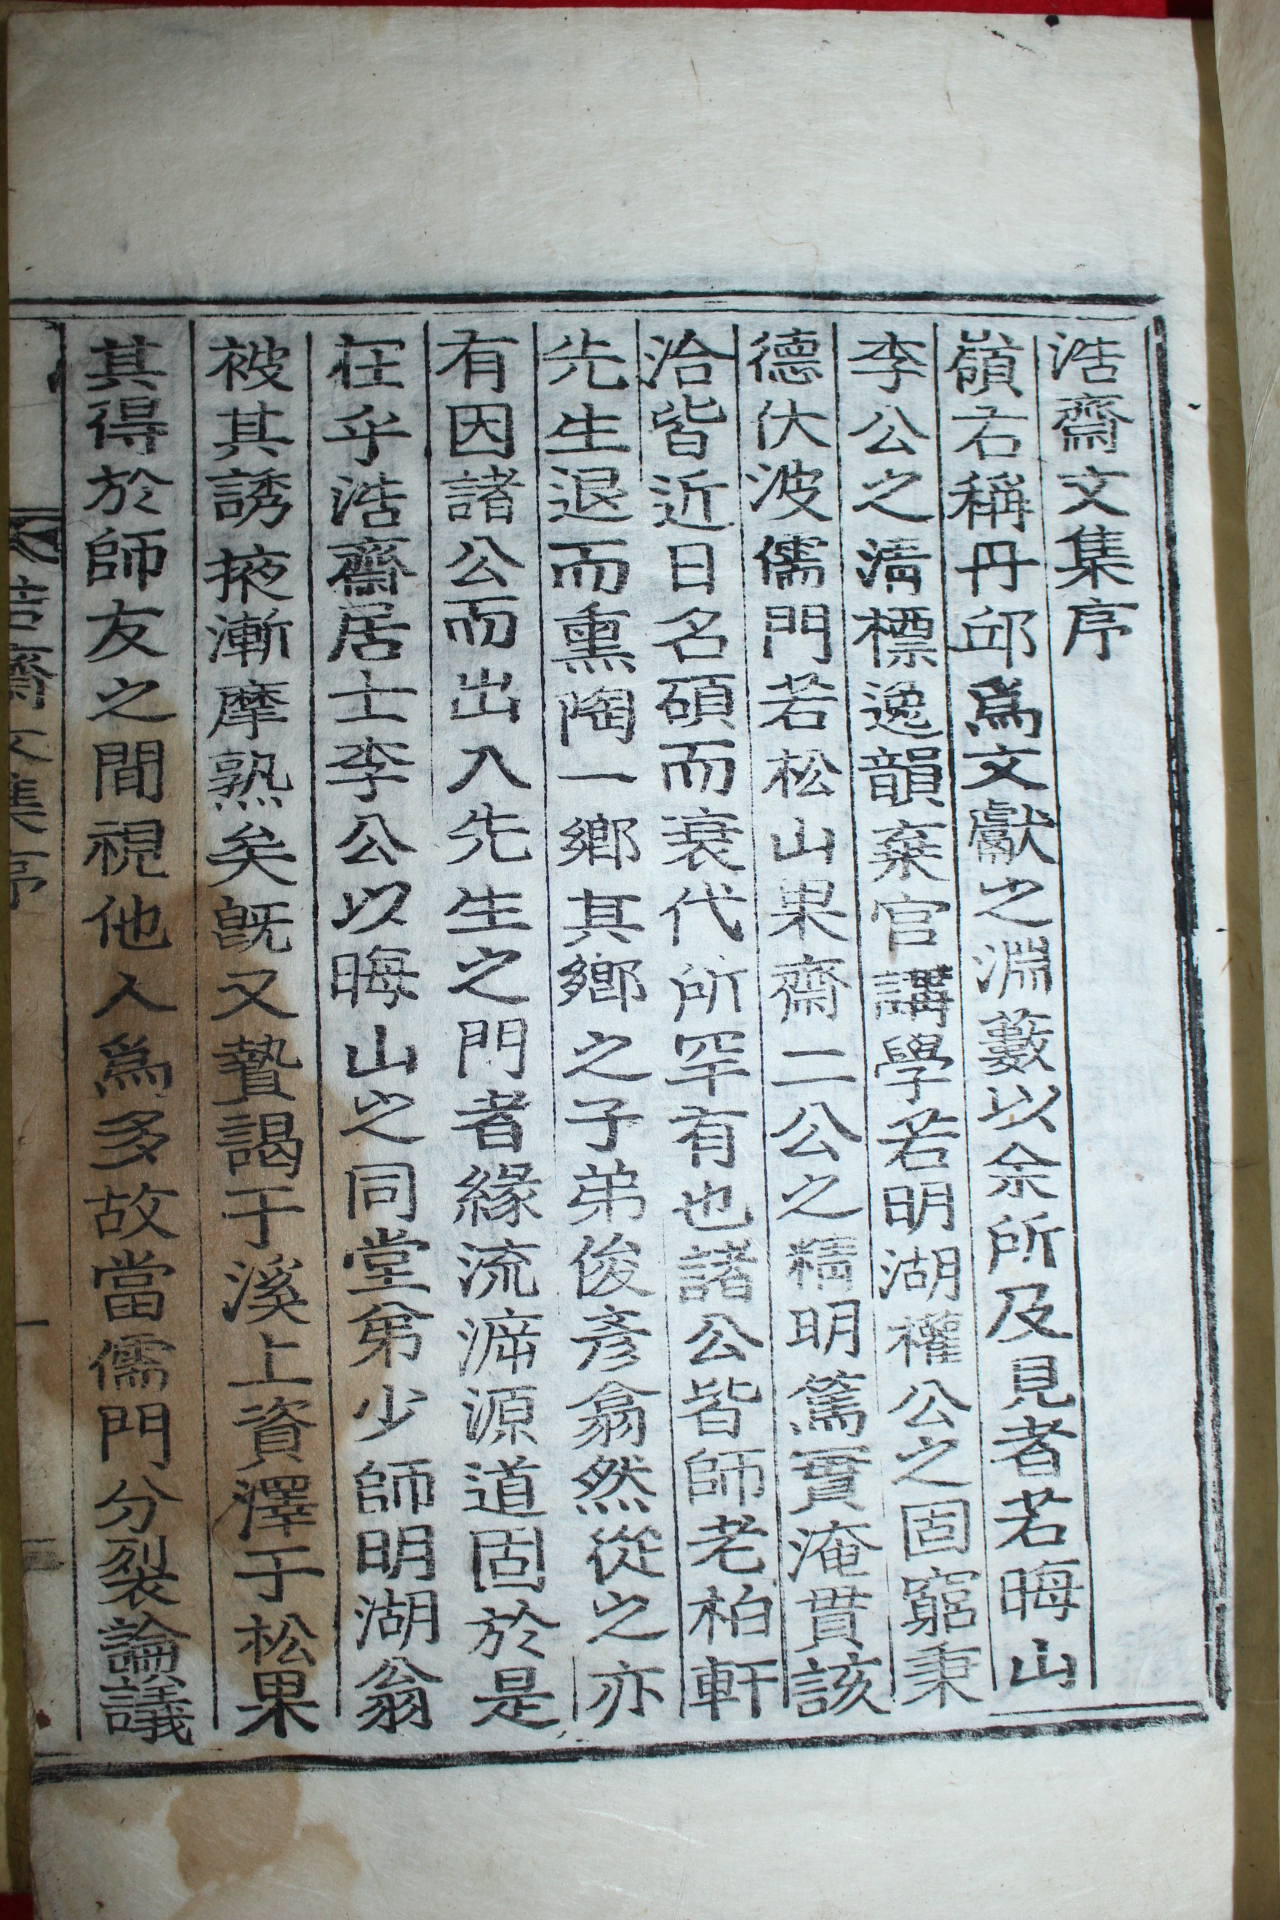 浩齋文集序
嶺右稱丹邱爲文獻之淵藪以余所及見者若晦山
李公之淸標逸韻棄官講學若明湖權公之固窮秉
德伏波儒門若松山果齋二公之精明篤實淹貫該
洽皆近日名碩而衰代所罕有也諸公皆師老柏軒
先生退而熏陶一鄕其鄕之子弟俊彦翕然從之亦
有因諸公而出入先生之門者緣流溯源道固於是
在乎浩齋居士李公以晦山之同堂弟少師明湖翁
被其誘掖漸摩熟矣旣又贄謁于溪上資澤于松果
其得於師友之間視他人爲多故當儒門分裂論議
浩齋文集序
一